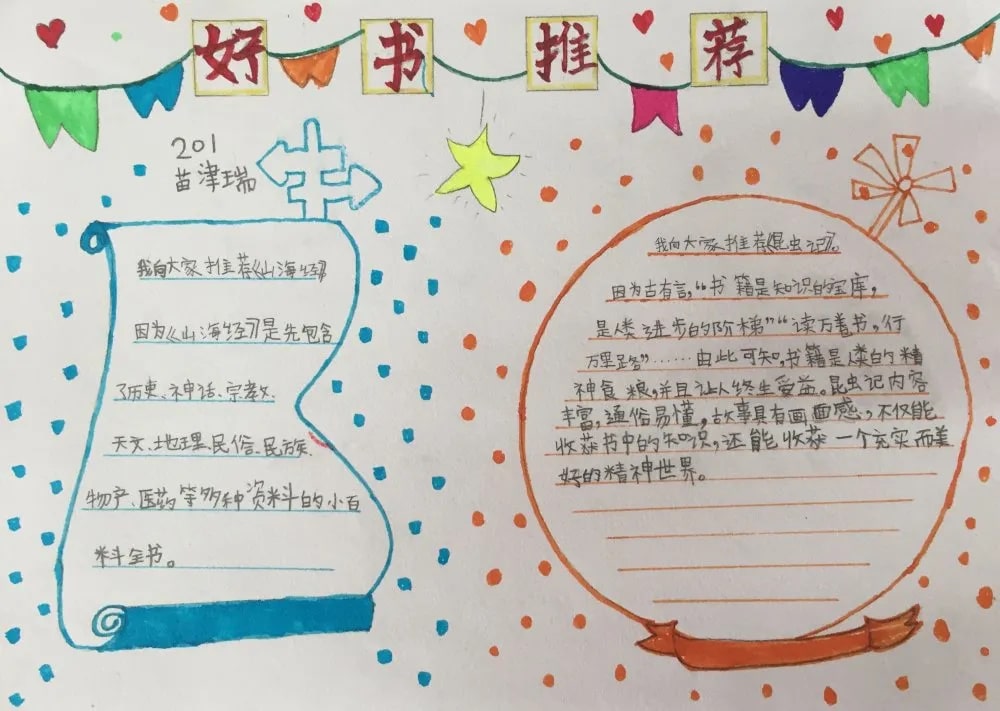 好书推荐
201
苗津瑞
我向大家推荐《山海经》
因为《山海经》是先包含
了历史、神话、宗教、
天文、地理、民俗、民族、
物产、医药等多种资料的小百
科全书。
我向大家推荐《昆虫记》。
因为古有言,“书籍是知识的宝库,
是人类进步的阶梯”“读万卷书,行
万里路”……由此可知,书籍是人类的精
神食粮,并且让人终生受益。昆虫记内容
丰富,通俗易懂,故事具有画面感,不仅能
收获书中的知识,还能收获一个充实而美
好的精神世界。